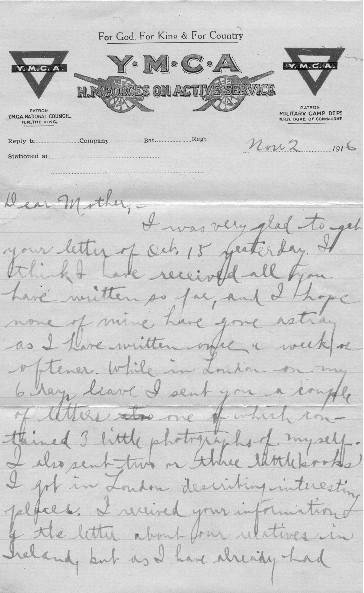 For God, For King & For Country
Y·M·C·A
H.M. FORCES ON ACTIVE SERVICE
Y.M.C.A.
PATRON
Y.M.C.A. NATIONAL COUNCIL
H.M. THE KING.
Y.M.C.A.
PATRON
MILITARY CAMP DEPT
H.R.H. DUKE OF CONNAUGHT
Reply to Company Bat. Regt.
Stationed at
Nov 2 1916
Dear Mother,-
I was very glad to get
your letter of Oct. 15 yesterday. I
think I have received all you
have written so far, and I hope
none of mine have gone astray
as I have written once a week or
oftener. While in London on my
6 days leave I sent you a couple
of letters one of which con-
tained 3 little photographs of myself.
I also sent two or three little books
I got in London describing interesting
places. I received your information
& the letter about your relatives in
Ireland, but as I have already had